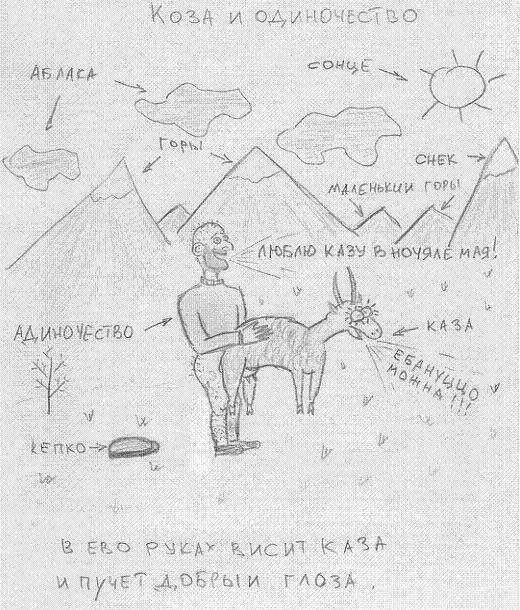 КОЗА И ОДИНОЧЕСТВО
АБЛАКА
СОНЦЕ
ГОРЫ
СНЕК
МАЛЕНЬКИИ ГОРЫ
ЛЮБЛЮ КАЗУ В НОЧЯЛЕ МАЯ!
АДИНОЧЕСТВО
КАЗА
ЕБАНУЦЦО
МОЖНА!!!
КЕПКО
В ЕВО РУКАХ ВИСИТ КАЗА
И ПУЧЕТ ДОБРЫИ ГЛОЗА.